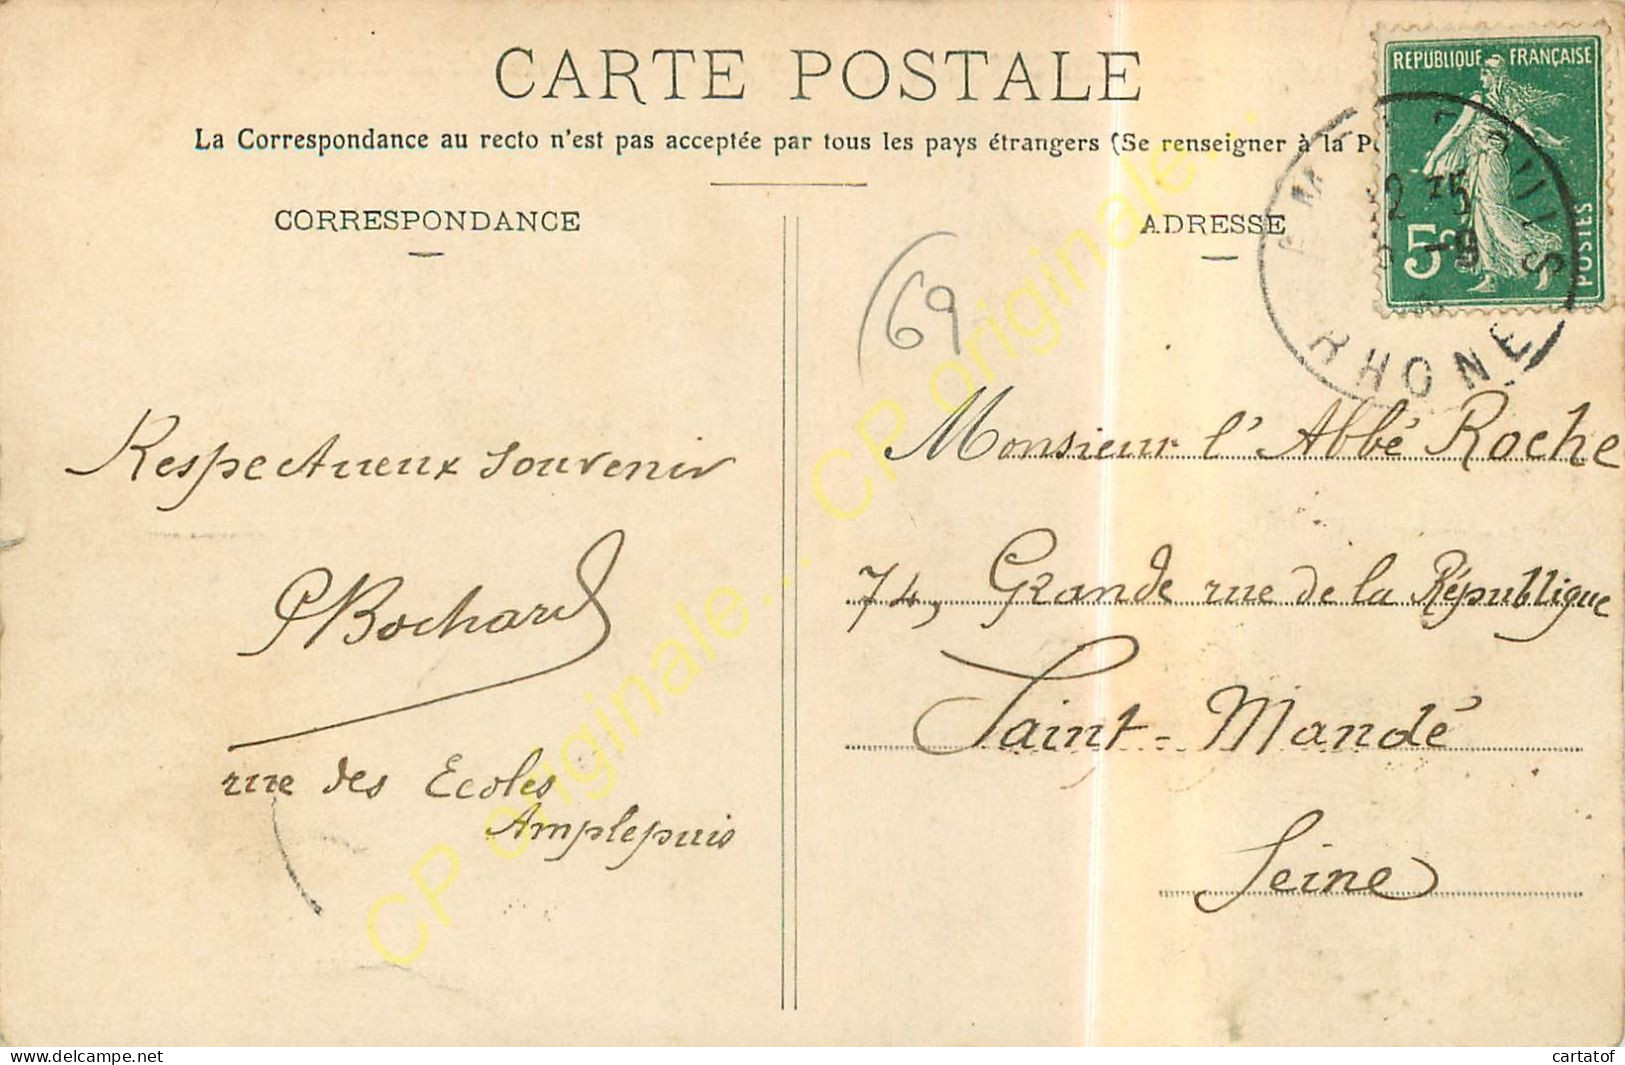 CARTE POSTALE
La Correspondance au recto n'est pas acceptée par tous les pays étrangers (Se renseigner à la
CORRESPONDANCE
ADRESSE
REPUBLIQUE FRANÇAISE
5c
POSTES
RHONE
69
Respectueux souvenir
PBochard
rue des Ecoles
Amplepuis
Monsieur l'Abbé Roche
74, Grande rue de la République
Saint-Mandé
Seine
CP originale...
CP originale...
www.delcampe.net
cartatof